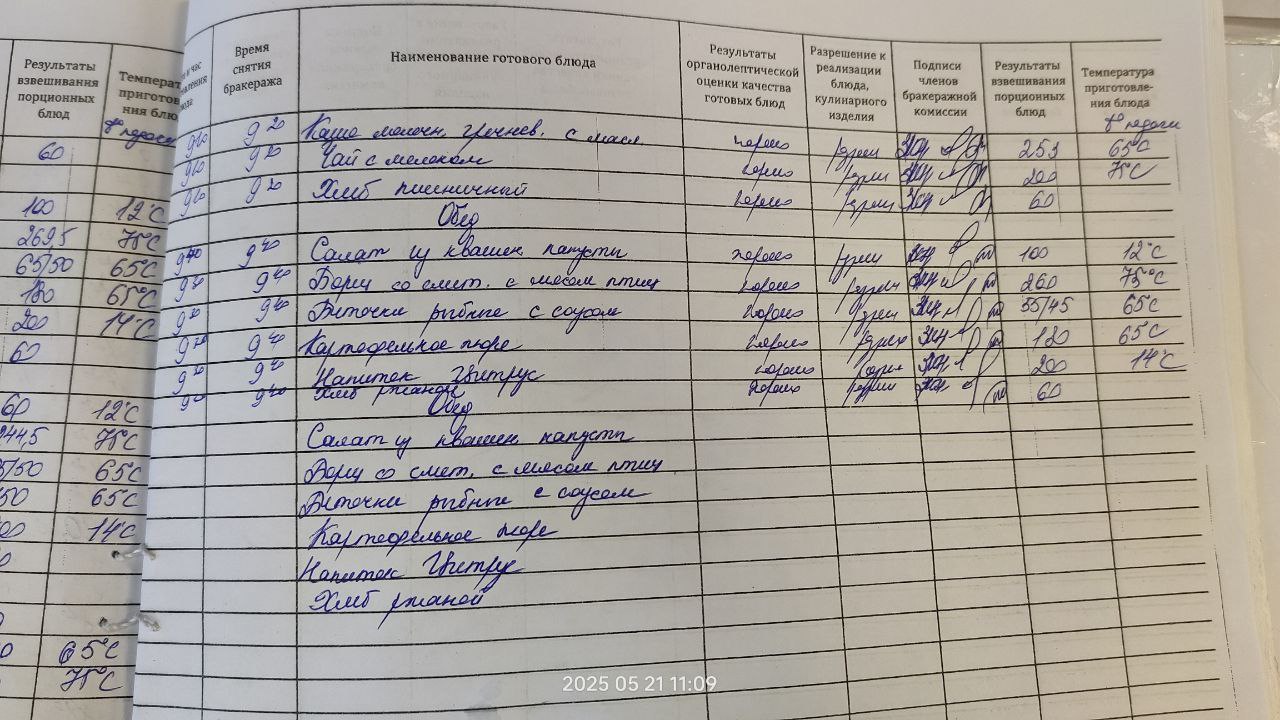 Результаты взвешивания порционных блюд
Температ приготов ния блю
60
100 12°С
269,5 75°С
65/50 65°С
180 65°С
200 14°С
60
60 12°С
244,5 75°С
5/50 65°С
50 65°С
00 14°С
65°С
75°С
Время снятия бракеража
Наименование готового блюда
Результаты органолептической оценки качества готовых блюд
Разрешение к реализации блюда, кулинарного изделия
Подписи членов бракеражной комиссии
Результаты взвешивания порционных блюд
Температура приготовле- ния блюда
t° подачи
9 20 9 20 Каша молочн. гречнев. с масл. хорошо разреш 253 65°С
9 20 9 20 Чай с молоком хорошо разреш 200 75°С
9 20 9 20 Хлеб пшеничный хорошо разреш 60
Обед
9 40 9 40 Салат из квашен. капусты хорошо разреш 100 12°С
9 40 9 40 Борщ со смет. с мясом птиц хорошо разреш 260 75°С
9 40 9 40 Биточки рыбные с соусом хорошо разреш 55/45 65°С
9 40 9 40 Картофельное пюре хорошо разреш 180 65°С
9 40 9 40 Напиток Цитрус хорошо разреш 200 14°С
9 40 9 40 Хлеб ржаной хорошо разреш 60
Обед
Салат из квашен. капусты
Борщ со смет. с мясом птиц.
Биточки рыбные с соусом
Картофельное пюре
Напиток Цитрус
Хлеб ржаной
2025 05 21 11:09